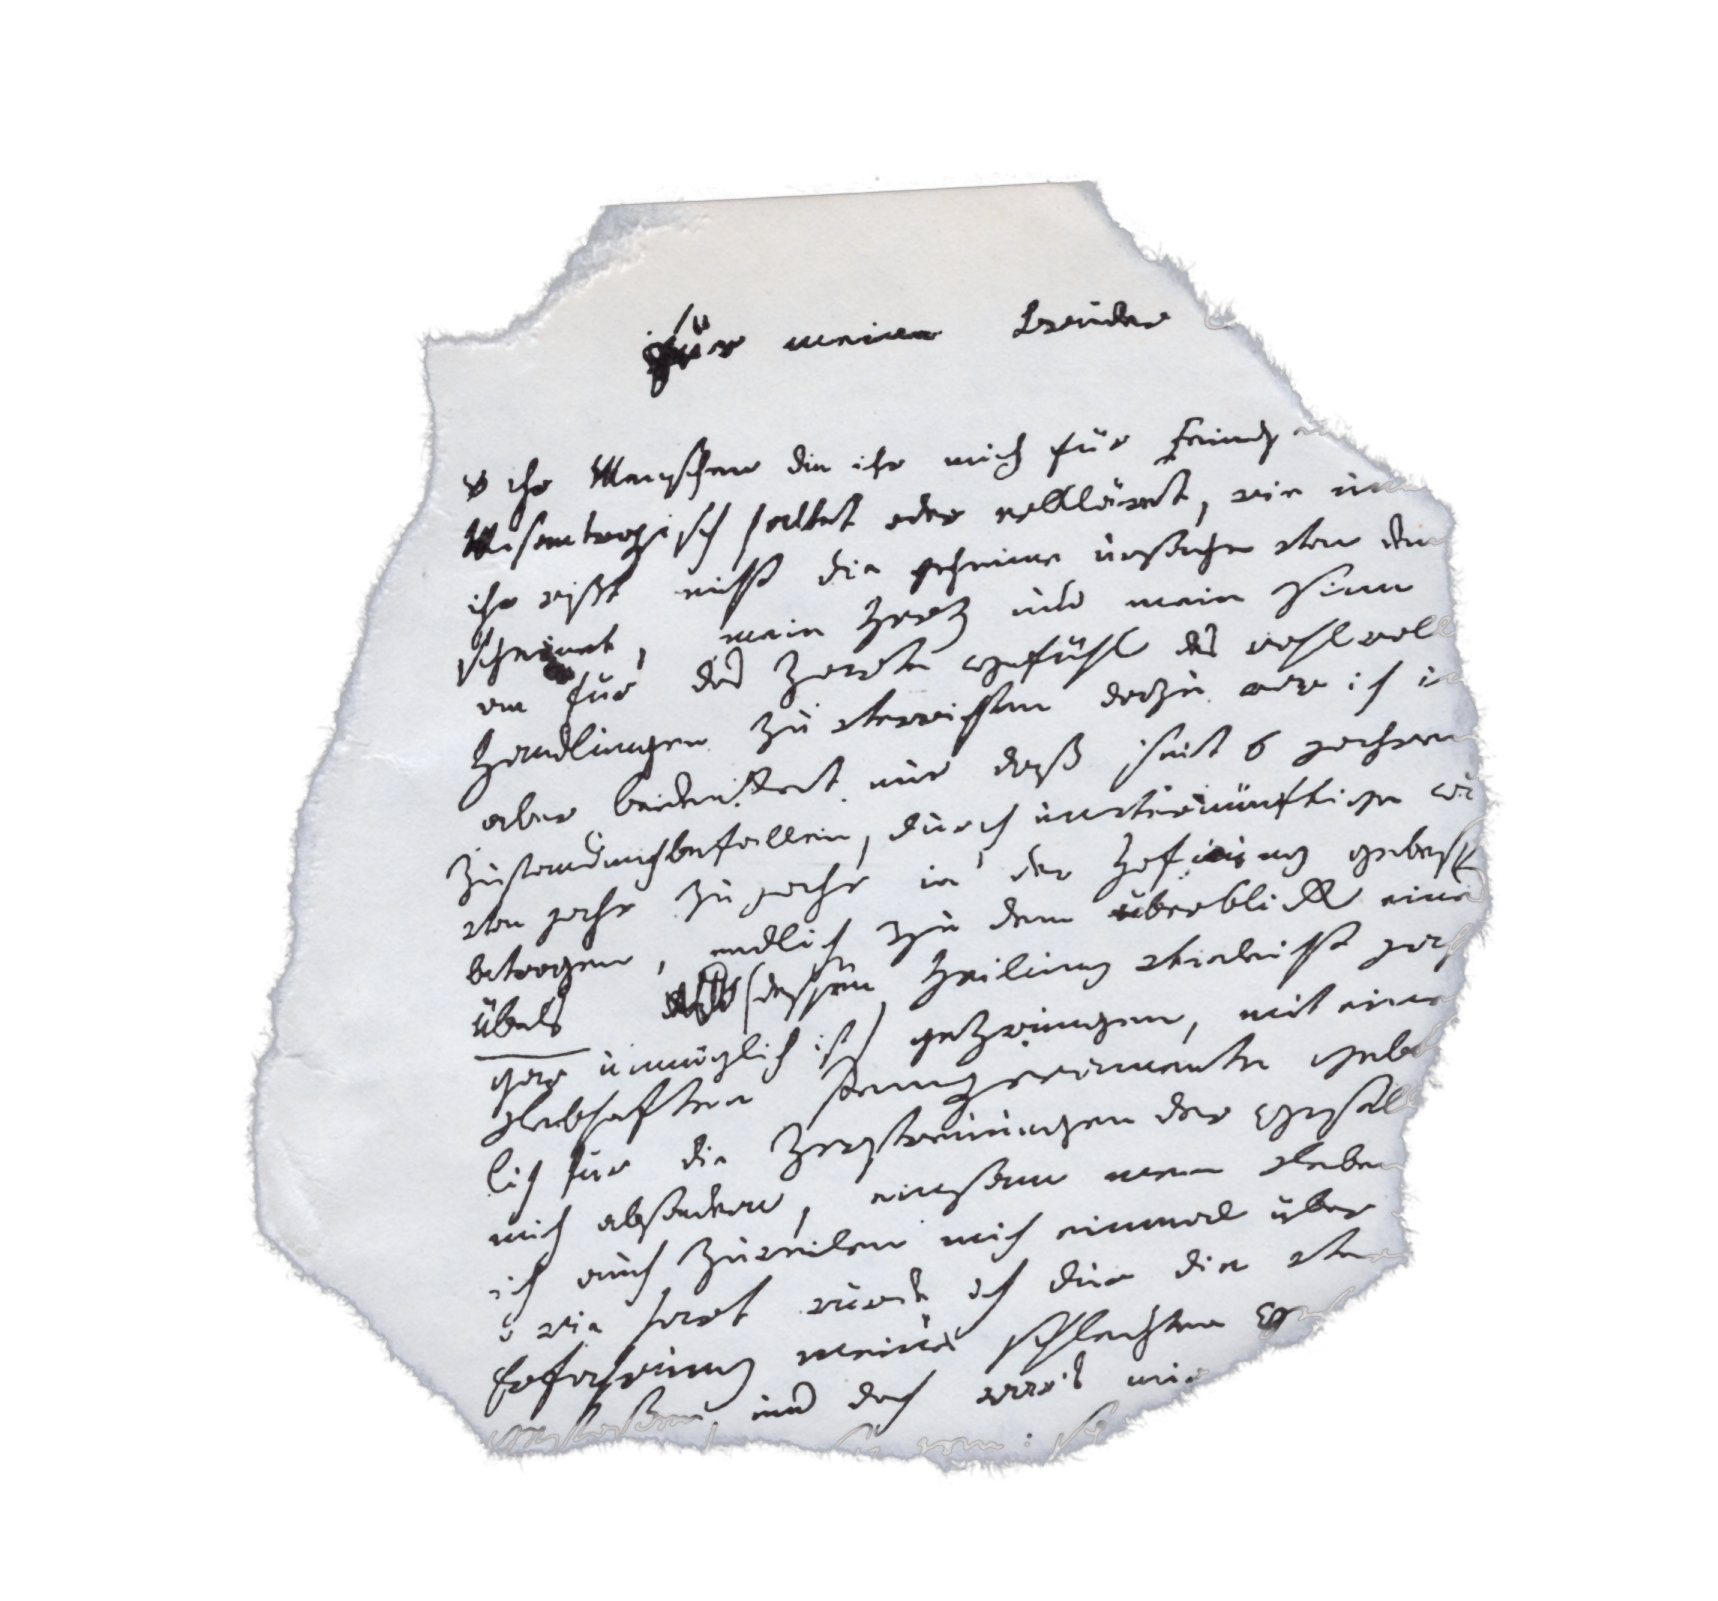 für meine Brüder
o ihr Menschen die ihr mich für Feinds
Misantropisch haltet oder erkläret, wie un
ihr wißt nicht die geheime urßache von dem
scheinet, mein Herz und mein Sinn
an für das Zarte Gefühl des wohlwoll
Handlungen zu verrichten dazu war ich i
aber bedenket nur daß seit 6 jahren
Zustand mich befallen, durch unvernünftige
von jahr zu jahr in der Hofnung gebess
betrogen, endlich zu dem überblick eines
übels (dessen Heilung vieleicht jah
gar unmöglich ist) gezwungen, mit einem
Lebhaften Temperamente geboh
lich für die Zerstreuungen der Gesell
mich absondern, einsam mein Leben
ich auch zuweilen mich einmal über
o wie hart wurde ich dur die ver
Erfahrung meines schlechten Ge
und doch war's mir